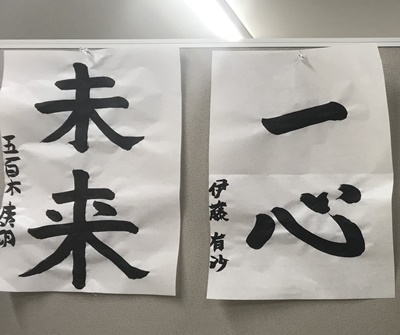 一心
伊藤 有沙
未来
五百木